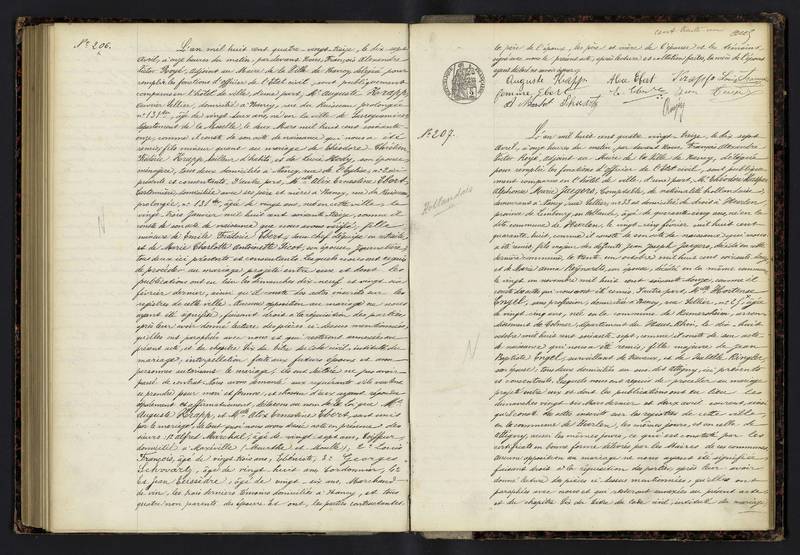 N° 206.
L'an mil huit cent quatre-vingt-treize, le dix sept
avril, à onze heures du matin, par devant Nous, François Alexandre
Victor adjoint au Maire de la Ville de Nancy, délégué pour
remplir les fonctions d'officier de l'Etat civil, sont publiquement
comparus en l'hôtel de ville, d'une part, Mr Auguste Krapp,
domicilié à Nancy, rue du Ruisseau prolongée
n° 131 âgé de vingt deux ans, né en la ville de Sarreguemines
département de la Moselle, le deux Mars mil huit cent soixante
onze, comme il conste de son acte de naissance qui nous a été
remis, fils mineur quant au mariage de Théodore Christian
Krapp, tailleur d'habits, et de son épouse,
ménagère, tous deux domiciliés à Nancy, rue de l'Eglise, n° 2 ici
présents et consentants. D'autre part, Mlle Alix Ernestine Ebert,
domiciliée avec ses père et mère à Nancy, rue du Ruisseau
prolongée, n° 131 âgée de vingt ans, née en cette ville le
vingt trois Janvier mil huit cent soixante treize, comme il
conste de son acte de naissance que nous avons vérifié, fille
mineure de Emile Frédéric Ebert,
et de Marie Charlotte Antoinette Picot, son épouse, journalière,
tous deux ici présents et consentants. Lesquels nous ont requis
de procéder au mariage projeté entre eux et dont les
publications ont eu lieu les dimanches dix neuf et vingt six
février dernier, ainsi qu'il conste des actes inscrits sur les
registres de cette ville. Aucune opposition au mariage ne nous
ayant été signifiée, faisant droit à la réquisition des parties,
après leur avoir donné lecture des pièces ci-dessus mentionnées,
qu'elles ont paraphées avec nous et qui resteront annexées au
présent acte, et du chapitre six du titre du code civil, intitulé du
mariage, interpellation faite aux futurs époux et aux
personnes autorisant le mariage, ils ont déclaré ne pas avoir
passé de contrat. Nous avons demandé aux requérants s'ils veulent
se prendre pour mari et femme, et chacun d'eux ayant répondu
séparément et affirmativement, déclarons au nom de la loi que Mr
Auguste Krapp, et Mlle Alix Ernestine Ebert, sont unis
par le mariage. De tout quoi nous avons dressé acte en présence des
sieurs: 1° Alfred Marchal, âgé de vingt sept ans,
domicilié à Maxéville (Meurthe et Moselle), 2° Louis
François, âgé de vingt trois ans, Ebéniste, 3° Georges
Schwartz, âgé de vingt huit ans, cordonnier, 4°
et Jean âgé de vingt-six ans, Marchand
de vin, les trois derniers témoins domiciliés à Nancy, et tous
quatre non parents des époux. Et ont, les parties contractantes,
le père de l'époux, les père et mère de l'épouse et les témoins
signé avec nous le présent acte, après lecture et collation faites,
Auguste Krapp Alix Ebert Krapp
femme Ebert E. Ebert
N° 207.
Hollandais
L'an mil huit cent quatre vingt treize, le dix sept
avril, à onze heures du matin, par devant Nous François Alexandre
Victor adjoint au Maire de la Ville de Nancy, délégué
pour remplir les fonctions d'officier de l'Etat civil, sont publique-
ment comparus en l'hôtel de ville, d'une part, Mr Théodore
Alphonse Marie Jaegers, Comptable, de nationalité hollandaise,
demeurant à Nancy, rue n° 23 et domicilié de droit à Heerlen,
province de Limbourg, en Hollande, âgé de quarante cinq ans, né en la
dite commune de Heerlen, le vingt-cinq février mil huit cent
quarante huit, comme il conste de son acte de naissance qui nous
a été remis, fils majeur des défunts Jean Joseph Jaegers, décédé en cette
dernière commune, le trente un octobre mil huit cent soixante
et de Maria Anna son épouse, décédée en la même commune,
le vingt un novembre mil huit cent soixante comme il
conste des actes qui nous ont été remis. D'autre part, Mlle Hortense
Engel, sans profession, domiciliée à Nancy, rue Sellier, n° 25 âgée
de vingt cinq ans, née en la commune de arron-
dissement de Colmar, département du Haut Rhin, le dix huit
octobre mil huit cent soixante sept, comme il conste de son acte
de naissance qui nous a été remis, fille majeure de Jean
Baptiste Engel, surveillant de travaux, et de
son épouse, tous deux domiciliés au ici présents
et consentants. Lesquels nous ont requis de procéder au mariage
projeté entre eux et dont les publications ont eu lieu les
dimanches vingt six Mars dernier et deux avril courant, ainsi
qu'il conste des actes inscrits sur les registres de cette ville
en la commune de Heerlen, les mêmes jours, et en celle de
aussi les mêmes jours, ce qui est constaté par les
certificats en bonne forme délivrés par les Maires de ces communes
aucune opposition au mariage ne nous ayant été signifiée
faisant droit à la réquisition des parties, après leur avoir
donné lecture des pièces ci-dessus mentionnées, qu'elles ont
paraphées avec nous et qui resteront annexées au présent acte
et du chapitre six du titre du code civil, intitulé du mariage